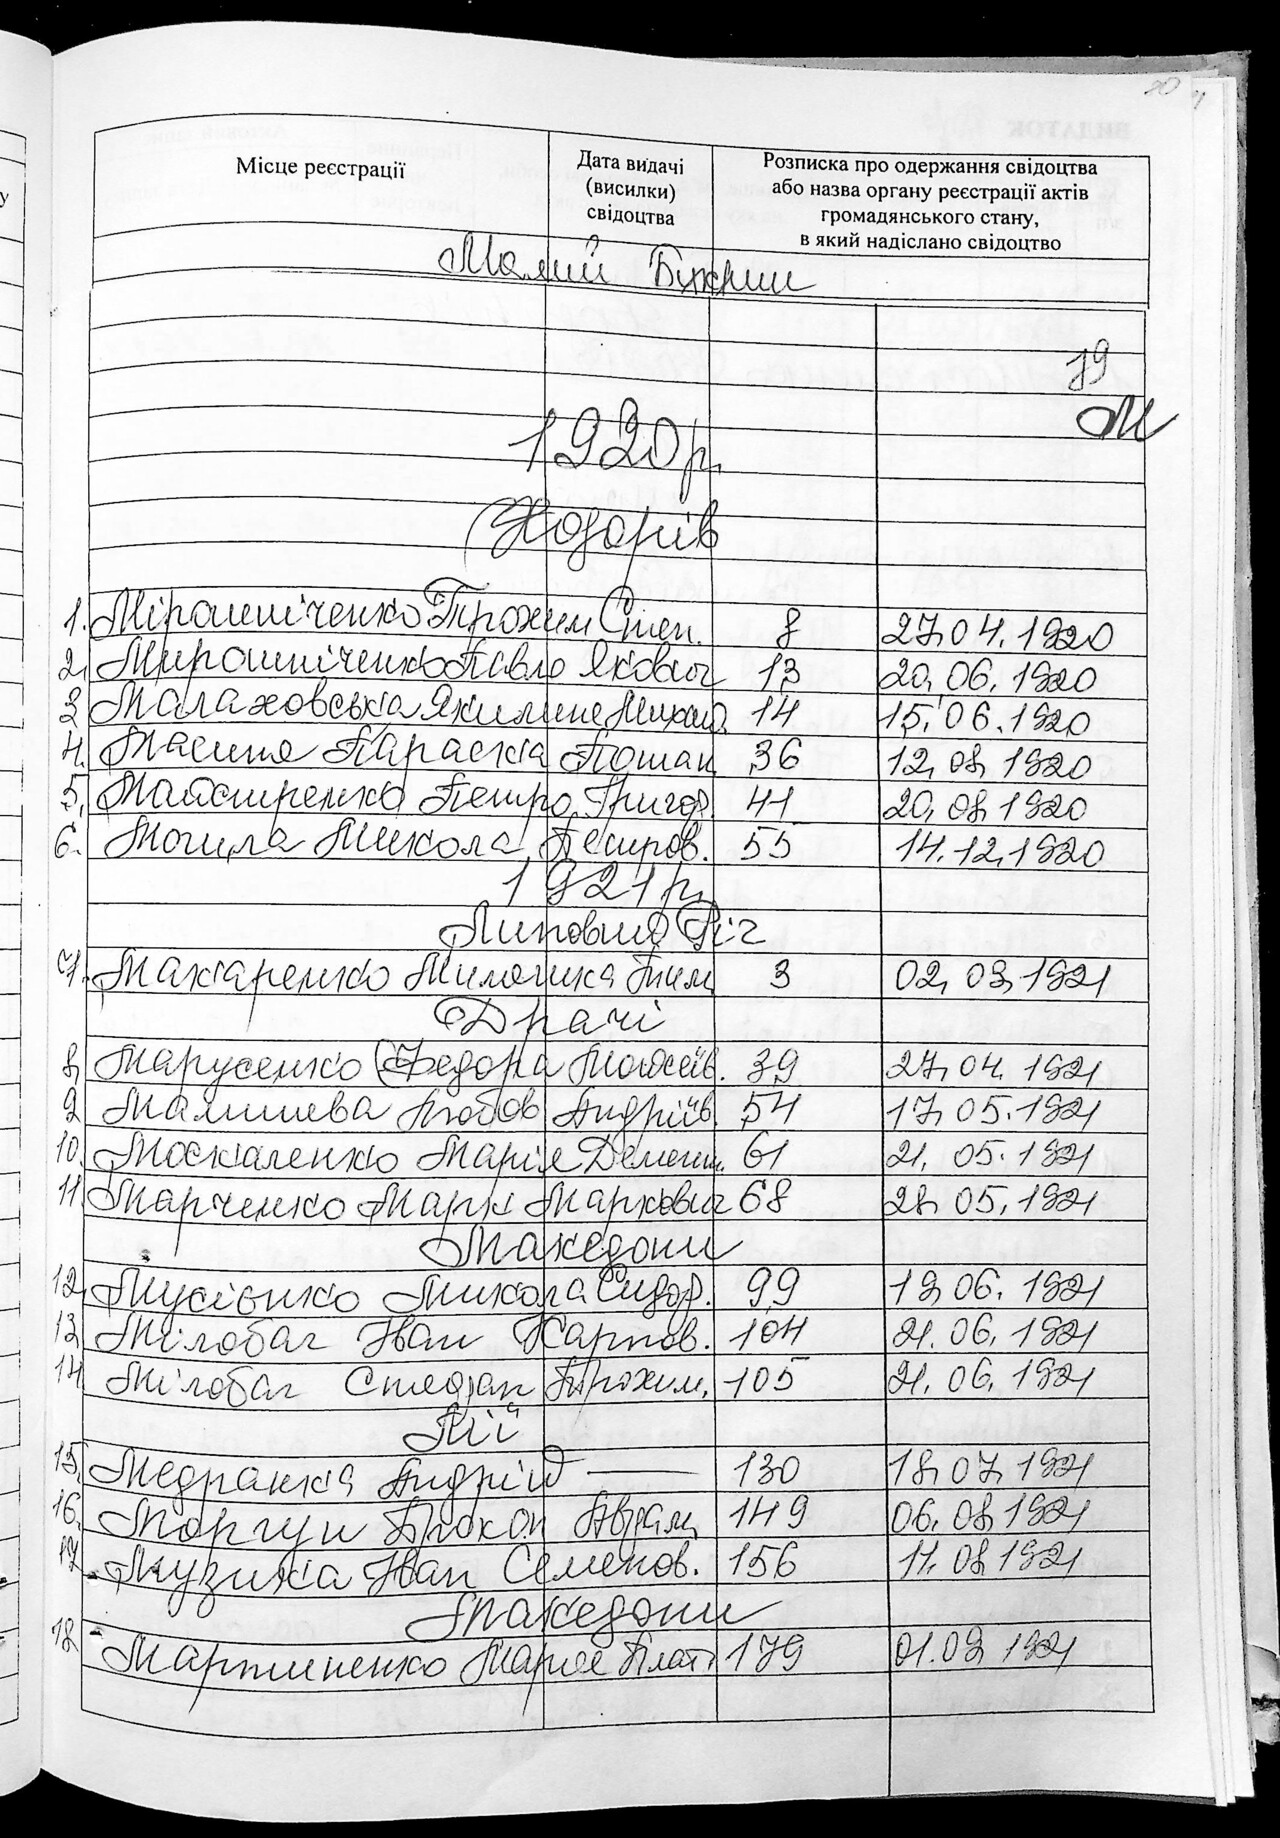 20
Місце реєстрації
Дата видачі
(висилки)
свідоцтва
Розписка про одержання свідоцтва
або назва органу реєстрації актів
громадянського стану,
в який надіслано свідоцтво
Малий Букрин
79
М
1920 р.
Ходорів
1. Мірошніченко Трохим Степ. 8 27.04.1920
2. Мирошніченко Павло Якович 13 20.06.1920
3. Малаховська Якилина Михайл. 14 15.06.1920
4. Параска 36 12.08.1920
5. Петро Григор. 41 20.08.1920
6. Могила Микола Петров. 55 14.12.1920
1921 р.
Липовий Ріг
7. Макаренко Тим. 3 02.03.1921
Драчі
8. Марусенко Федора Мойсеїв. 39 27.04.1921
9. Малишева Любов Андріїв. 54 17.05.1921
10. Москаленко Марія 61 21.05.1921
11. Марченко Марк Маркович 68 28.05.1921
Македони
12. Мусієнко Микола Сидор. 99 19.06.1921
13. Мілобаг Іван Карпов. 104 21.06.1921
14. Мілобаг Степан Трохим. 105 21.06.1921
Пії
15. Андрій — 130 18.07.1921
16. Моргун Прокоп Аврам. 149 06.08.1921
17. Музика Іван Семенов. 156 11.08.1921
Македони
18. Мартиненко Марія Плат. 179 01.09.1921